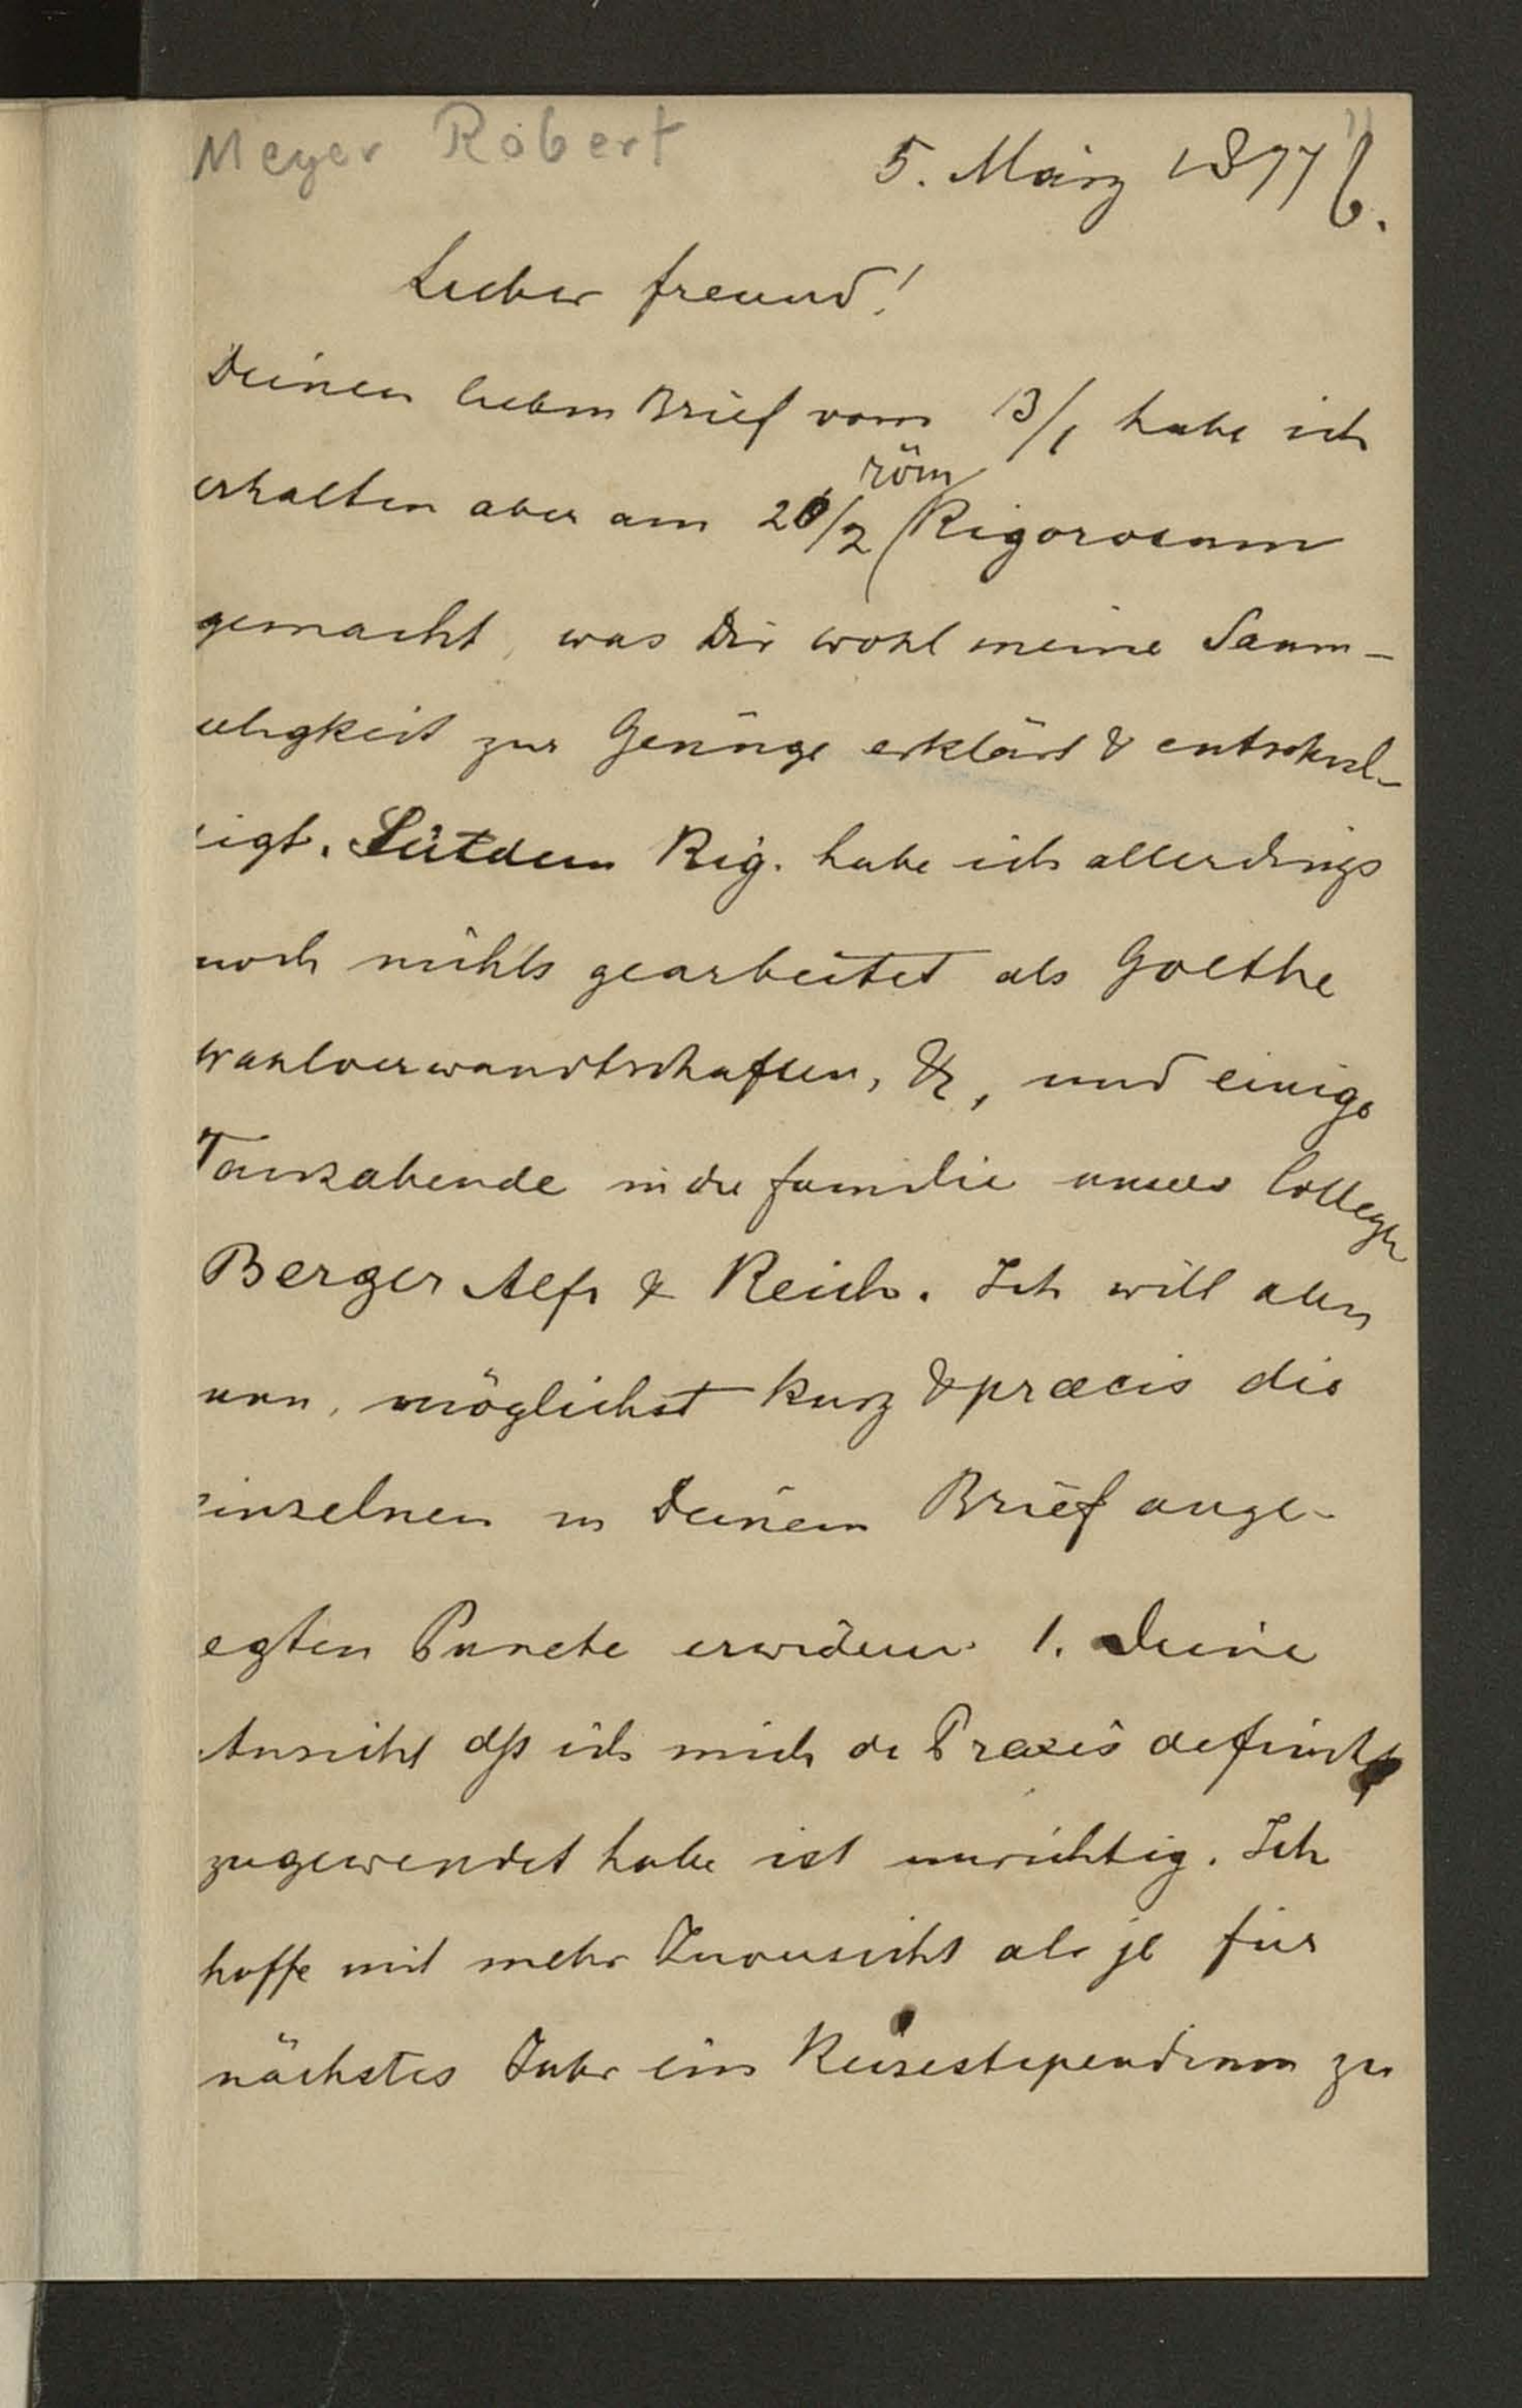 Meyer Robert
5. März 1877
Lieber Freund!
Deinen lieben Brief vom 13/1 habe ich
röm
erhalten aber am 20/2 Rigorosum
gemacht, was Dir wohl meine Saum-
seligkeit zur Genüge erklärt & entschul-
digt. Seitdem Rig. habe ich allerdings
noch nichts gearbeitet als Goethe
Wahlverwandtschaften, &, und einige
Tanzabende in der Familie unseres Collegen
Berger Alfr & Reich. Ich will aber
nun, möglichst kurz & præcis die
einzelnen in Deinem Brief ange-
regten Puncte erwidern 1. Deine
Ansicht dß ich mich der Praxis definitiv
zugewendet habe ist unrichtig. Ich
hoffe mit mehr Zuversicht als je für
nächstes Jahr ein Reisestipendium zu